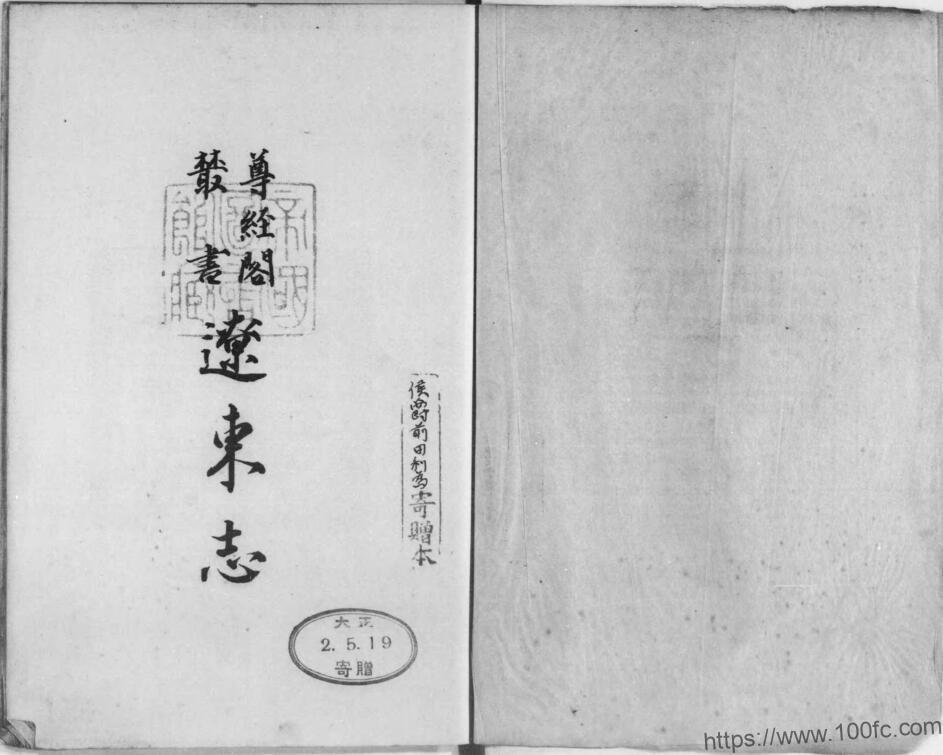 尊經閣
叢書
遼東志
帝國
圖書
館藏
侯爵前田利為寄贈本
大正
2.5.19
寄贈
https://www.100fc.com